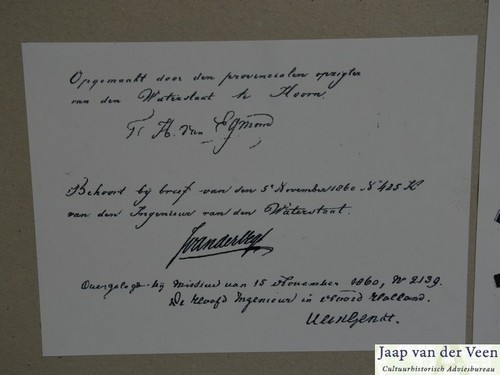 Opgemaakt door den provincialen opzigter
van den Waterstaat te Hoorn.
H. van Egmond
Behoort bij brief van den 5e November 1860 No 425 K
van den Ingenieur van den Waterstaat.
Overgelegd bij missive van 15 November 1860, No 2139.
De Hoofd Ingenieur in Noord Holland.
Jaap van der Veen
Cultuurhistorisch Adviesbureau